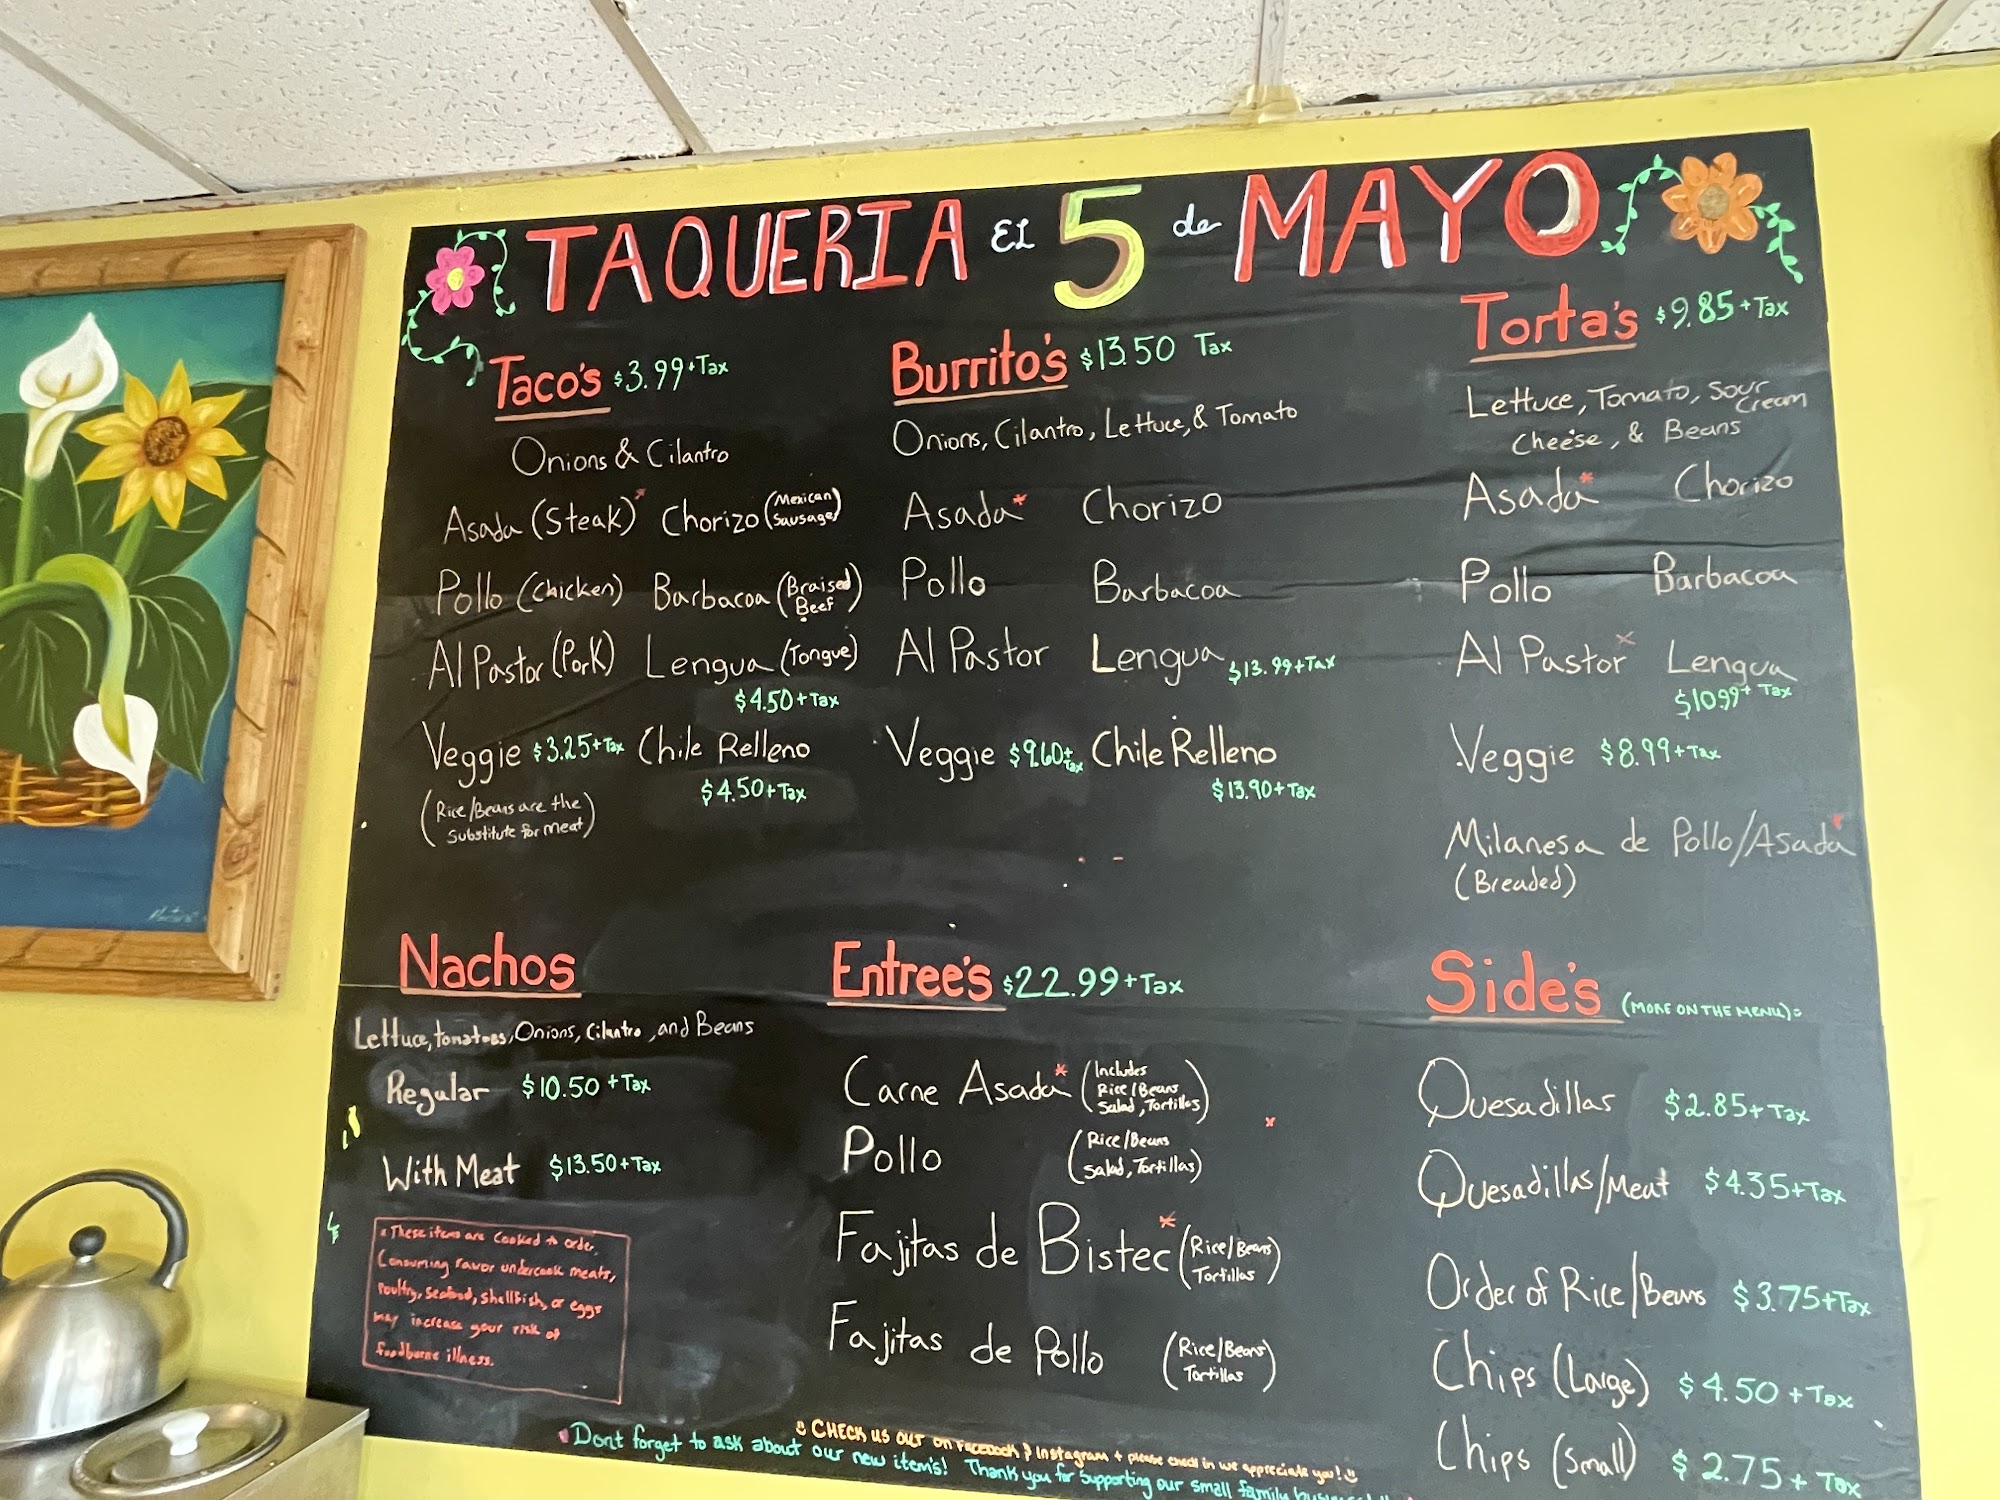 TAQUERIA El 5 de MAYO
Taco's $3.99+Tax
Onions & Cilantro
Asada (Steak)* Chorizo (Mexican Sausage)
Pollo (Chicken) Barbacoa (Braised Beef)
Al Pastor (Pork) Lengua (Tongue)
$4.50+Tax
Veggie $3.25+Tax Chile Relleno
$4.50+Tax
(Rice/Beans are the
Substitute for meat)
Burrito's $13.50 Tax
Onions, Cilantro, Lettuce, & Tomato
Asada* Chorizo
Pollo Barbacoa
Al Pastor Lengua $13.99+Tax
Veggie $9.60+Tax Chile Relleno
$13.90+Tax
Torta's $9.85+Tax
Lettuce, Tomato, Sour Cream
Cheese, & Beans
Asada* Chorizo
Pollo Barbacoa
Al Pastor* Lengua
$10.99+ Tax
Veggie $8.99+Tax
Milanesa de Pollo/Asada*
(Breaded)
Nachos
Lettuce, tomatoes, Onions, Cilantro, and Beans
Regular $10.50 +Tax
With Meat $13.50+Tax
* These items are Cooked to order.
Consuming raw or undercook meats,
Poultry, Seafood, Shellfish, or eggs
may increase your risk of
foodborne illness.
Entree's $22.99+Tax
Carne Asada* (Includes
Rice/Beans
Salad, Tortillas)
Pollo (Rice/Beans
Salad, Tortillas)
Fajitas de Bistec* (Rice/Beans
Tortillas)
Fajitas de Pollo (Rice/Beans
Tortillas)
Side's (MORE ON THE MENU)
Quesadillas $2.85+Tax
Quesadillas/Meat $4.35+Tax
Order of Rice/Beans $3.75+Tax
Chips (Large) $4.50 +Tax
Chips (Small) $2.75+ Tax
CHECK us out on Facebook & Instagram + please check in we appreciate you!
Dont forget to ask about our new item's! Thank you for supporting our small family business!